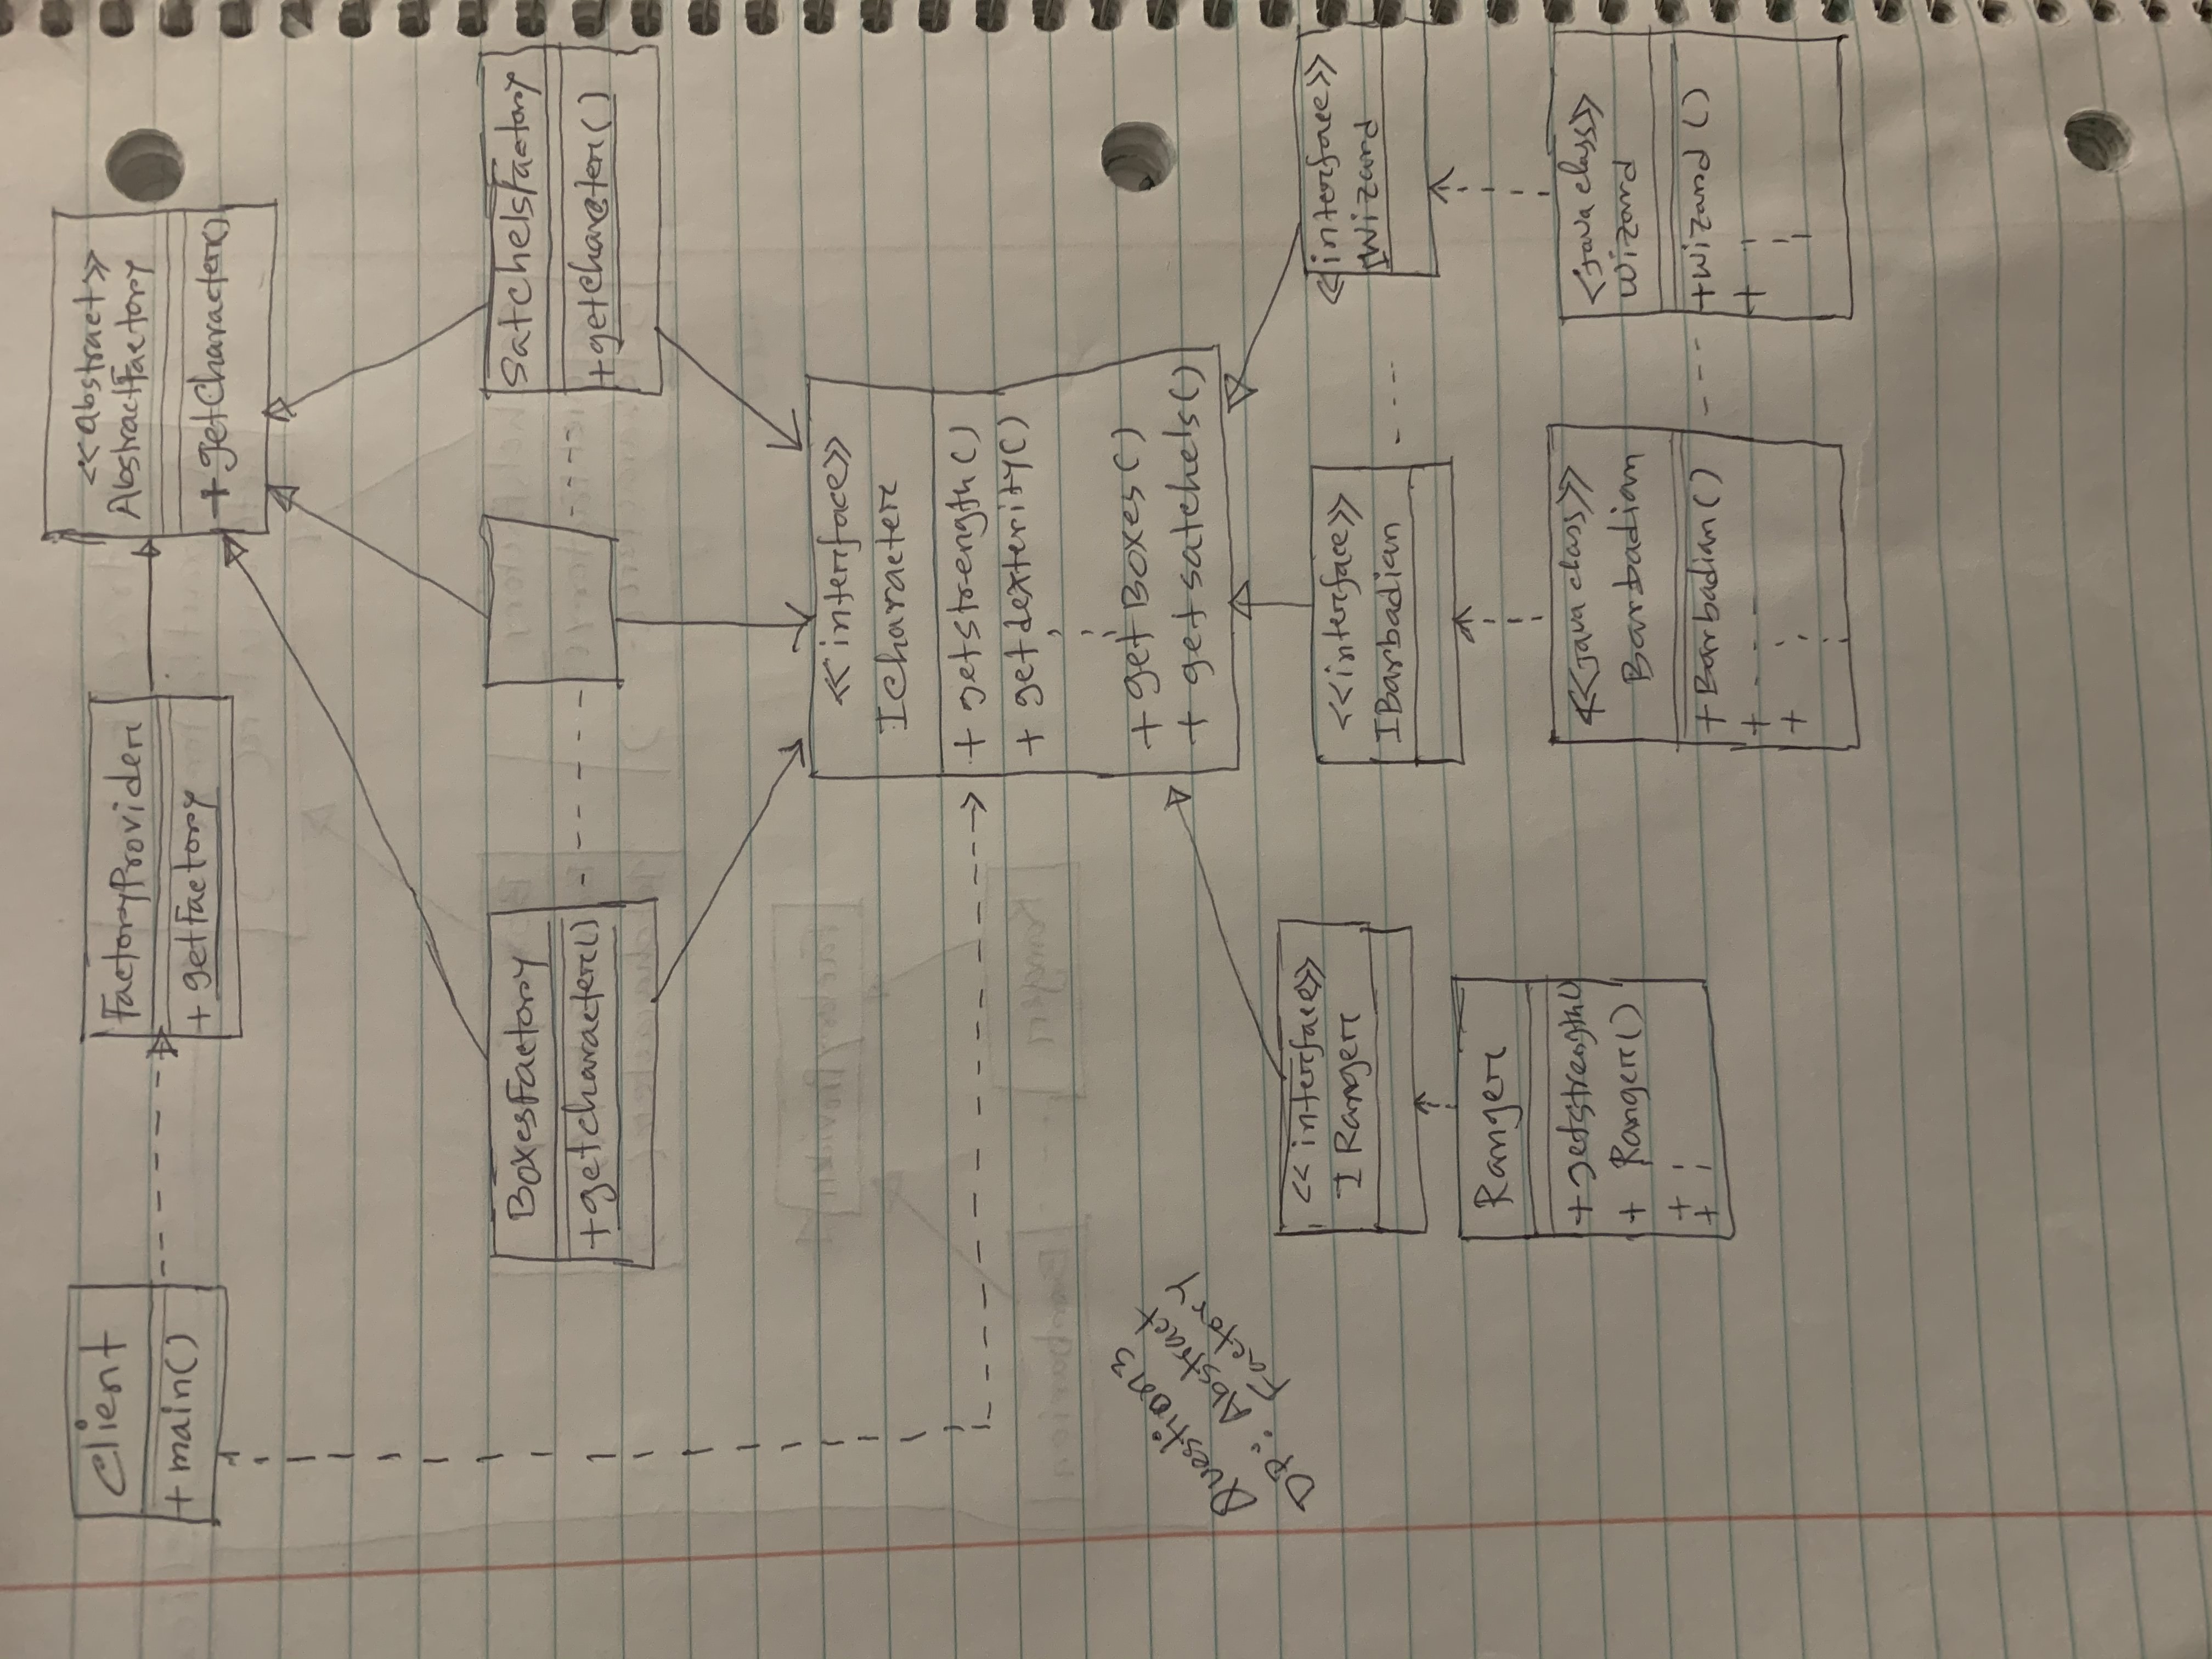 Client
+ main()
FactoryProvider
+ getFactory
<<Abstract>>
AbstractFactory
+ getCharacter()
BoxesFactory
+ getcharacter()
SatchelsFactory
+ getCharacter()
<<interface>>
ICharacter
+ getstrength()
+ getdexterity()
+ getBoxes()
+ getsatchels()
Question3
DP: Abstract
Factory
<<interface>>
IRanger
<<interface>>
IBarbadian
<<interface>>
IWizard
Ranger
+ getstrength()
+ Ranger()
+
+
<<java class>>
Barbadian
+ Barbadian()
+ - - -
+
<java class>>
Wizard
+ Wizard()
+